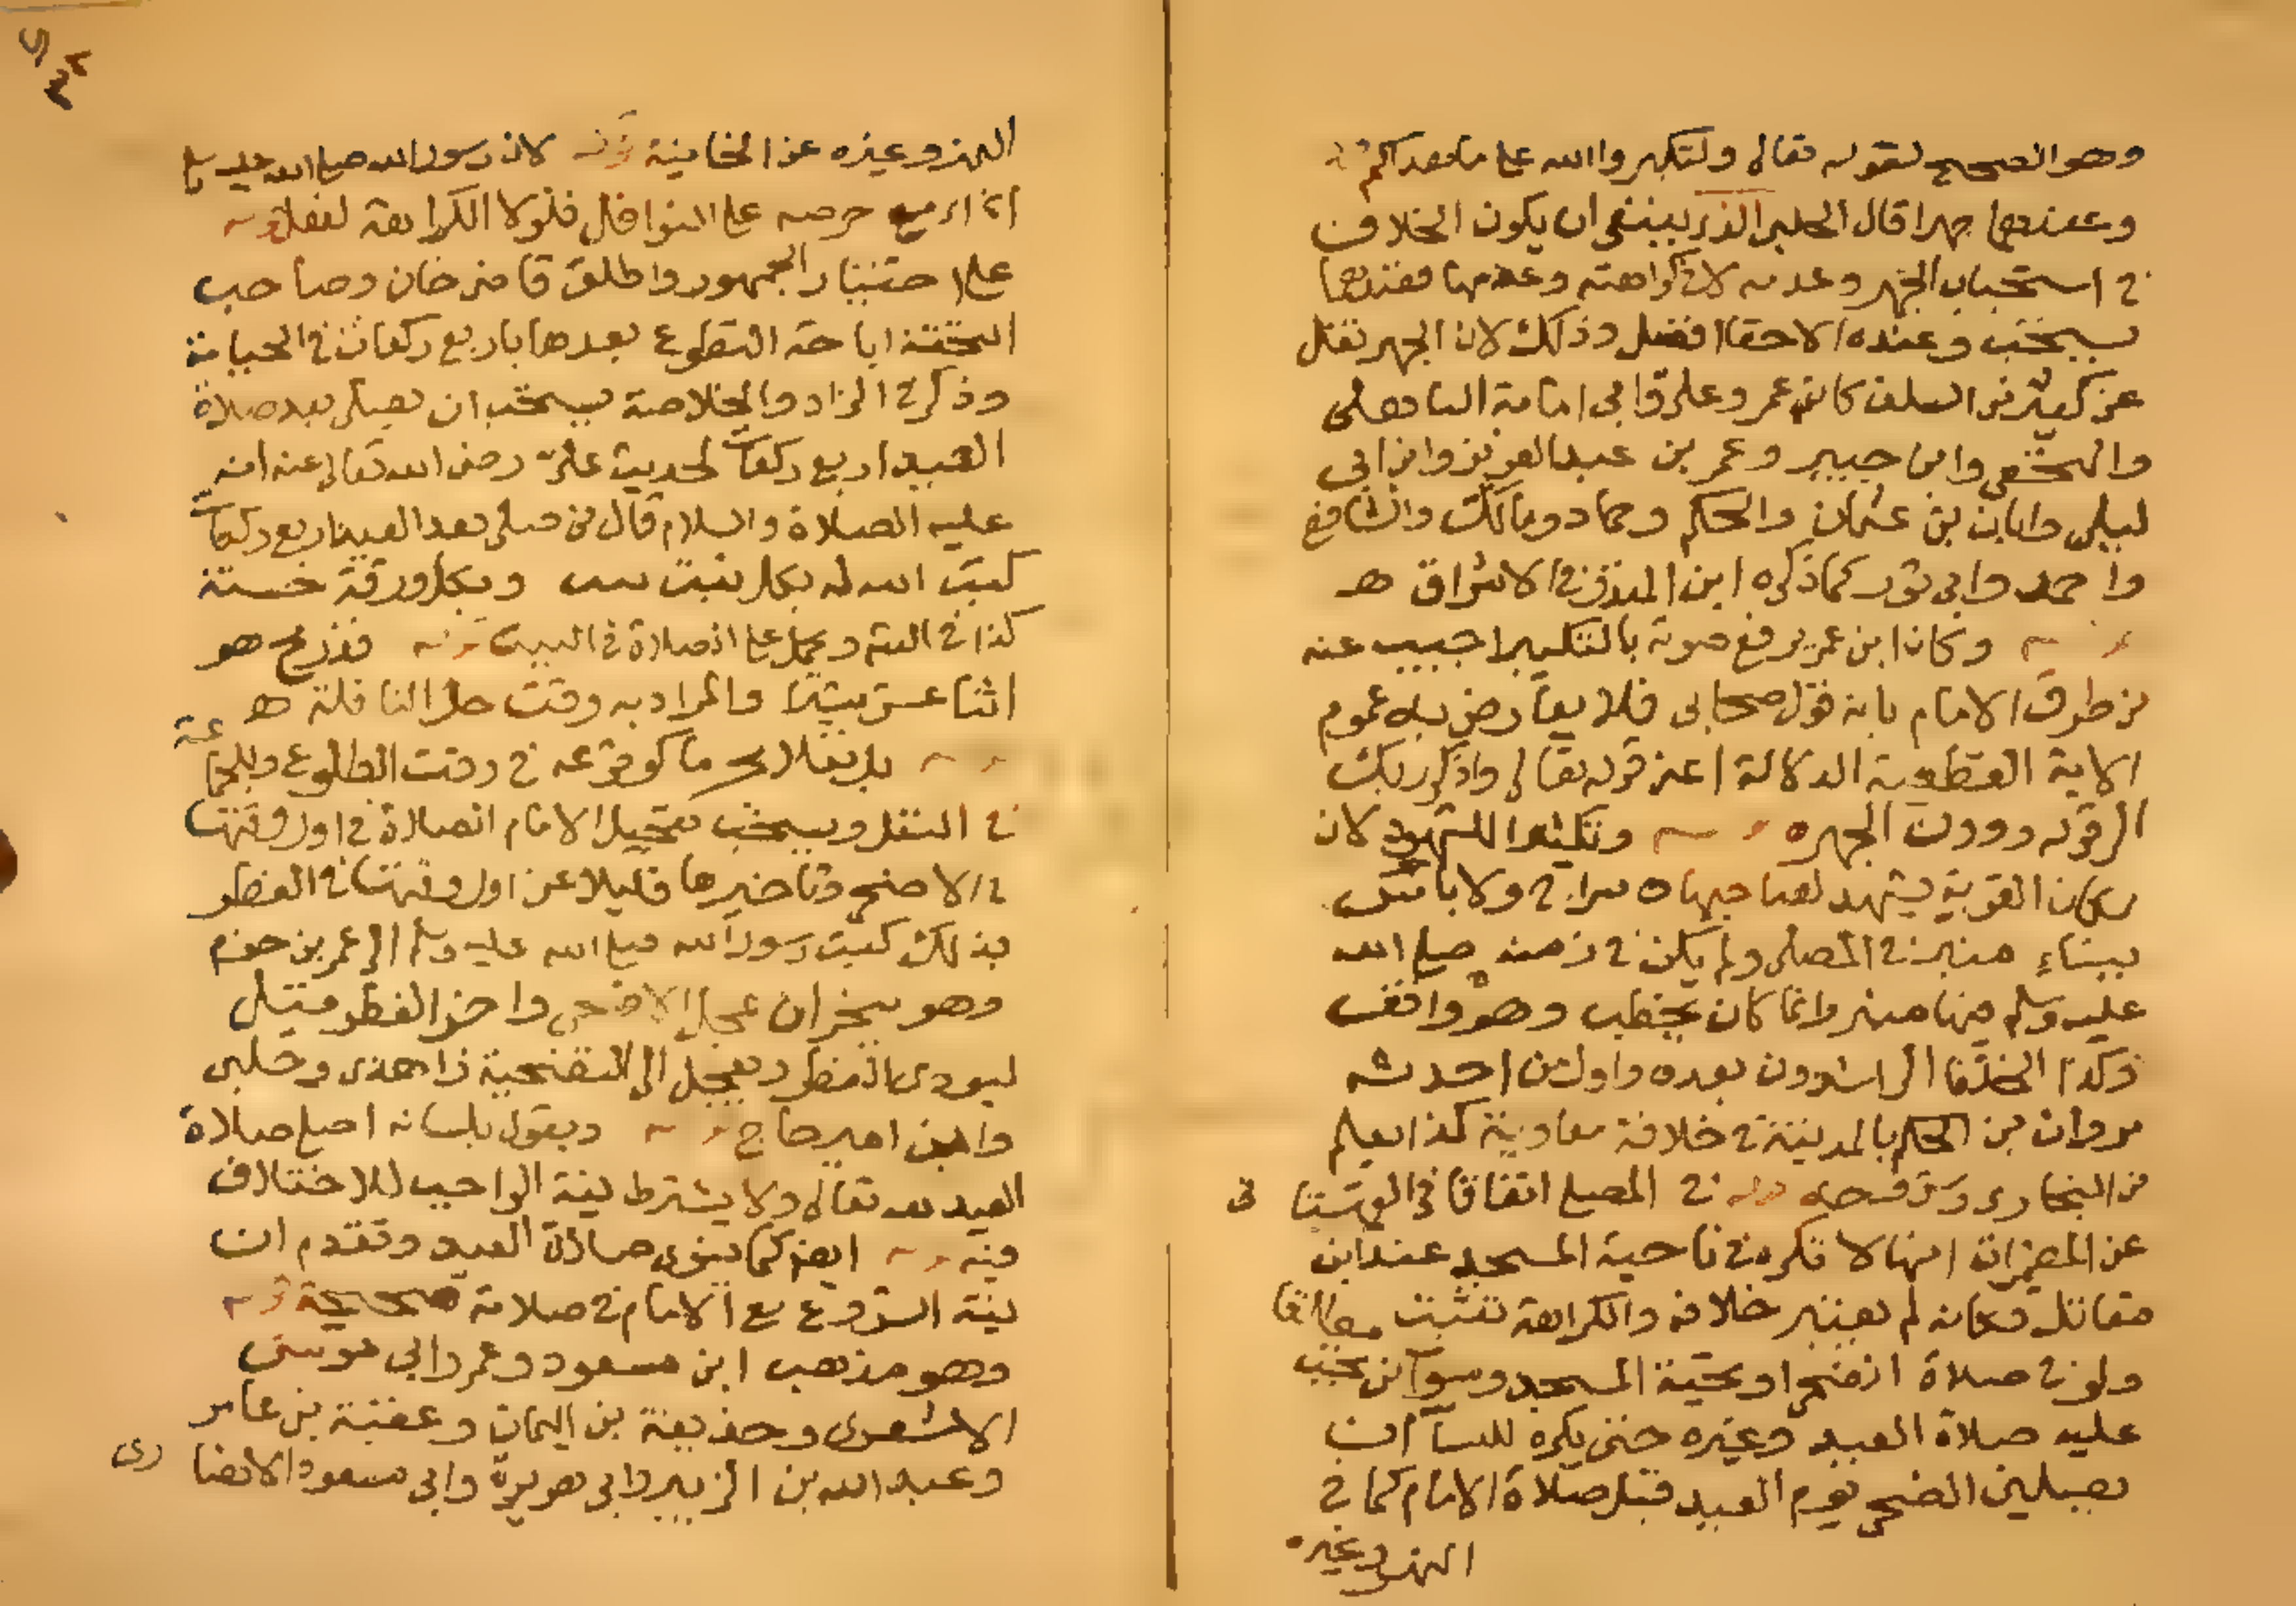 وهو الصحيح لقوله تعالى ولتكبروا الله على ما هداكم
وعندهما جهرا قال الحلبي الذي ينبغي ان يكون الخلاف
في استحباب الجهر وعدمه لا في كراهته وعدمها فعندهما
يستحب وعنده الاخفا افضل وذلك لان الجهر نقل
عن كثير من السلف كابن عمر وعلي وابي امامة الباهلي
والنخعي وابن جبير وعمر بن عبد العزيز وابن ابي
ليلى وابان بن عثمان والحكم وحماد ومالك والشافعي
واحمد وابي ثور كما ذكره ابن المنذر في الاشراق هـ
وكان ابن عمر يرفع صوته بالتكبير اجيب عنه
من طرف الامام بانه قول صحابي فلا يعارض به عموم
الاية القطعية الدلالة اعني قوله تعالى واذكر ربك
الى قوله ودون الجهر وتكثيرا للشهود لان
مكان القربة يشهد لصاحبها ولا باس
ببناء منبر في المصلى ولم يكن في زمنه صلى الله
عليه وسلم فيها منبر وانما كان يخطب وهو واقف
وكذا الخلفا الراشدون بعده واول من احدثه
مروان بن الحكم بالمدينة في خلافة معاوية كذا يعلم
من البخاري وشرحه قوله في المصلى اتفاقا في القهستا ني
عن المضمرات انها لا تكره في ناحية المسجد عند ابن
مقاتل فكانه لم يعتبر خلافه والكراهة تثبت مطلقا
ولو في صلاة الضحى او تحية المسجد وسوا من تجب
عليه صلاة العيد وغيره حتى يكره للنسآ ان
يصلين الضحى يوم العيد قبل صلاة الامام كما في
النهر وغيره
النهر وغيره عن الخانية قوله لان رسول الله صلى الله عليه وسلم
اي مع حرصه على النوافل فلولا الكراهة لفعل
على اختيار الجمهور واطلق قاضي خان وصاحب
التحفة اباحة التطوع بعدها باربع ركعات في الجبانة
وذكر في الزاد والخلاصة يستحب ان يصلى بعد صلاة
العيد اربع ركعات لحديث علي رضي الله تعالى عنه انه
عليه الصلاة والسلام قال من صلى بعد العيد اربع ركعات
كتب الله له بكل نبت نبت وبكل ورقة حسنة
كذا في ويحمل على الصلاة في البيت قدر رمح هو
اثنا عشر شبرا والمراد به وقت حل النافلة هـ
بل نفلا لو وقوعه في وقت الطلوع وللجما عة
في النفل ويستحب تعجيل الامام الصلاة في اول وقتها
في الاضحى وتاخيرها قليلا عن اول وقتها في الفطر
بذلك كتب رسول الله صلى الله عليه وسلم الى عمر بن حزم
وهو بنجران عجل الاضحى واخر الفطر قيل
ليودي الفطر ويعجل الى التضحية زاهدي وحلبي
وابن امير حاج ويقول بلسانه اصلي صلاة
العيد لله تعالى ولا يشترط نية الواجب للاختلاف
فيه كما ينوي صلاة العيد وتقدم ان
نية الشروع مع الامام في صلاته صحيحة
وهو مذهب ابن مسعود وعمر وابي موسى
الاشعري وحذيفة بن اليمان وعقبة بن عامر
وعبد الله بن الزبير وابي هريرة وابي مسعود الانصا ري